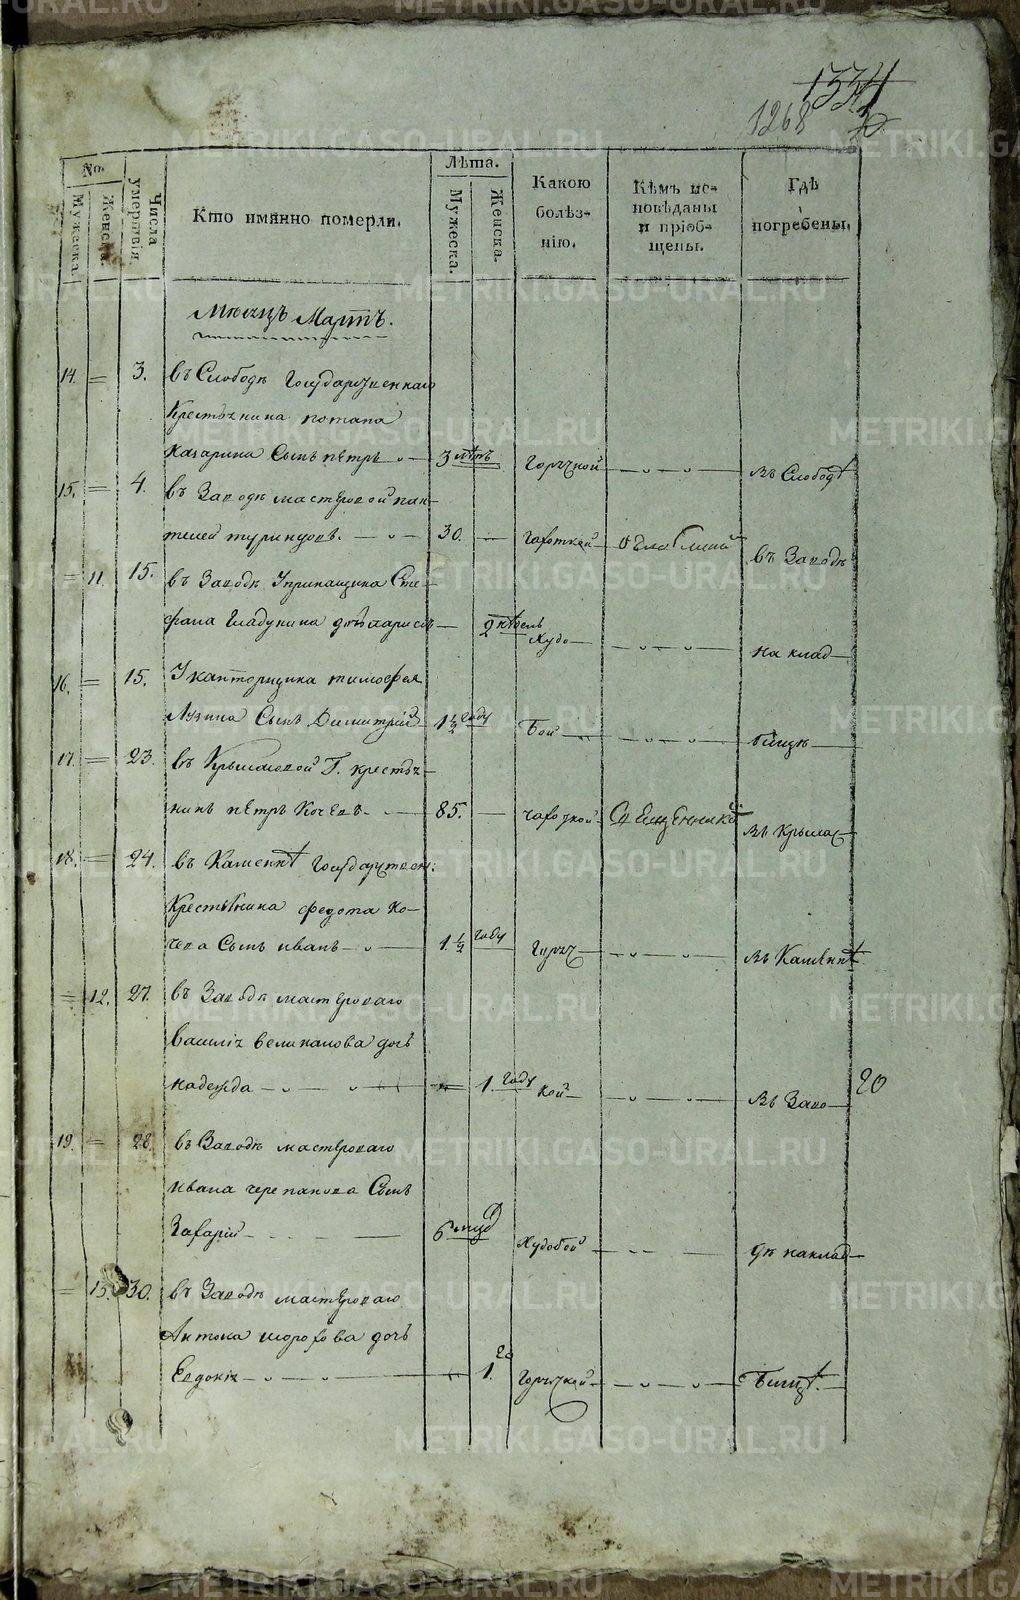 METRIKI.GASO-URAL.RU
1334
1268
No.
Мужеска.
Женска.
Числа умертвія
Кто имянно померли.
Лѣта.
Мужеска.
Женска.
Какою болѣз-
нію.
Кѣмъ ис-
повѣданы
и пріоб-
щены.
Гдѣ
погребены.
Мѣсяцъ Мартъ.
14. = 3. въ Слободѣ Государственнаго
Крестьянина потапа
Казарина Сынъ пётръ 3 лѣтъ горячкой въ Слободѣ
15. = 4. въ Заводѣ мастеровой пан-
телей 30. — чахоткой въ Заводѣ
= 11. 15. въ Заводѣ Уприкащика Сте-
фана Гладунина дочь лариса 2 недель Худо
на клад
16. = 15. У канторщика тимофея
Сынъ Димитрій 1 1/2 году бой бищѣ
17. = 23. въ Крыласовой Г. крестья-
нинъ пётръ Кочевъ 85. — чахоткой Священникъ въ Крылас
18. = 24. въ Каменкѣ государствен:
Крестьянина федота Ко-
чева Сынъ иванъ 1 1/2 году горяч въ Каменкѣ
= 12. 27. въ Заводѣ мастероваго
Василія великанова дочь
надежда 1. году кой въ Заво 20
19. = 28. въ Заводѣ мастероваго
ивана черепанова Сынъ
Захарій 6 нед Худобой дѣ наклад
= 13. 30. въ Заводѣ мастероваго
Антона шорохова дочь
Евдокія 1. го горячкой бищѣ.